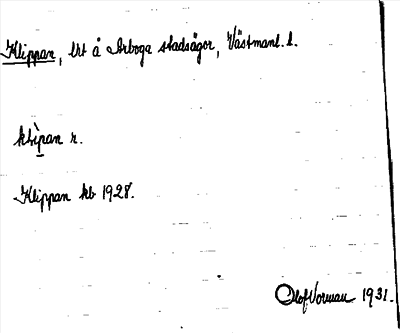 Klippan, lrt å Arboga stadsägor, Västmanl. l.
klìpan r.
Klippan kb 1928.
Olof Vorman 1931.